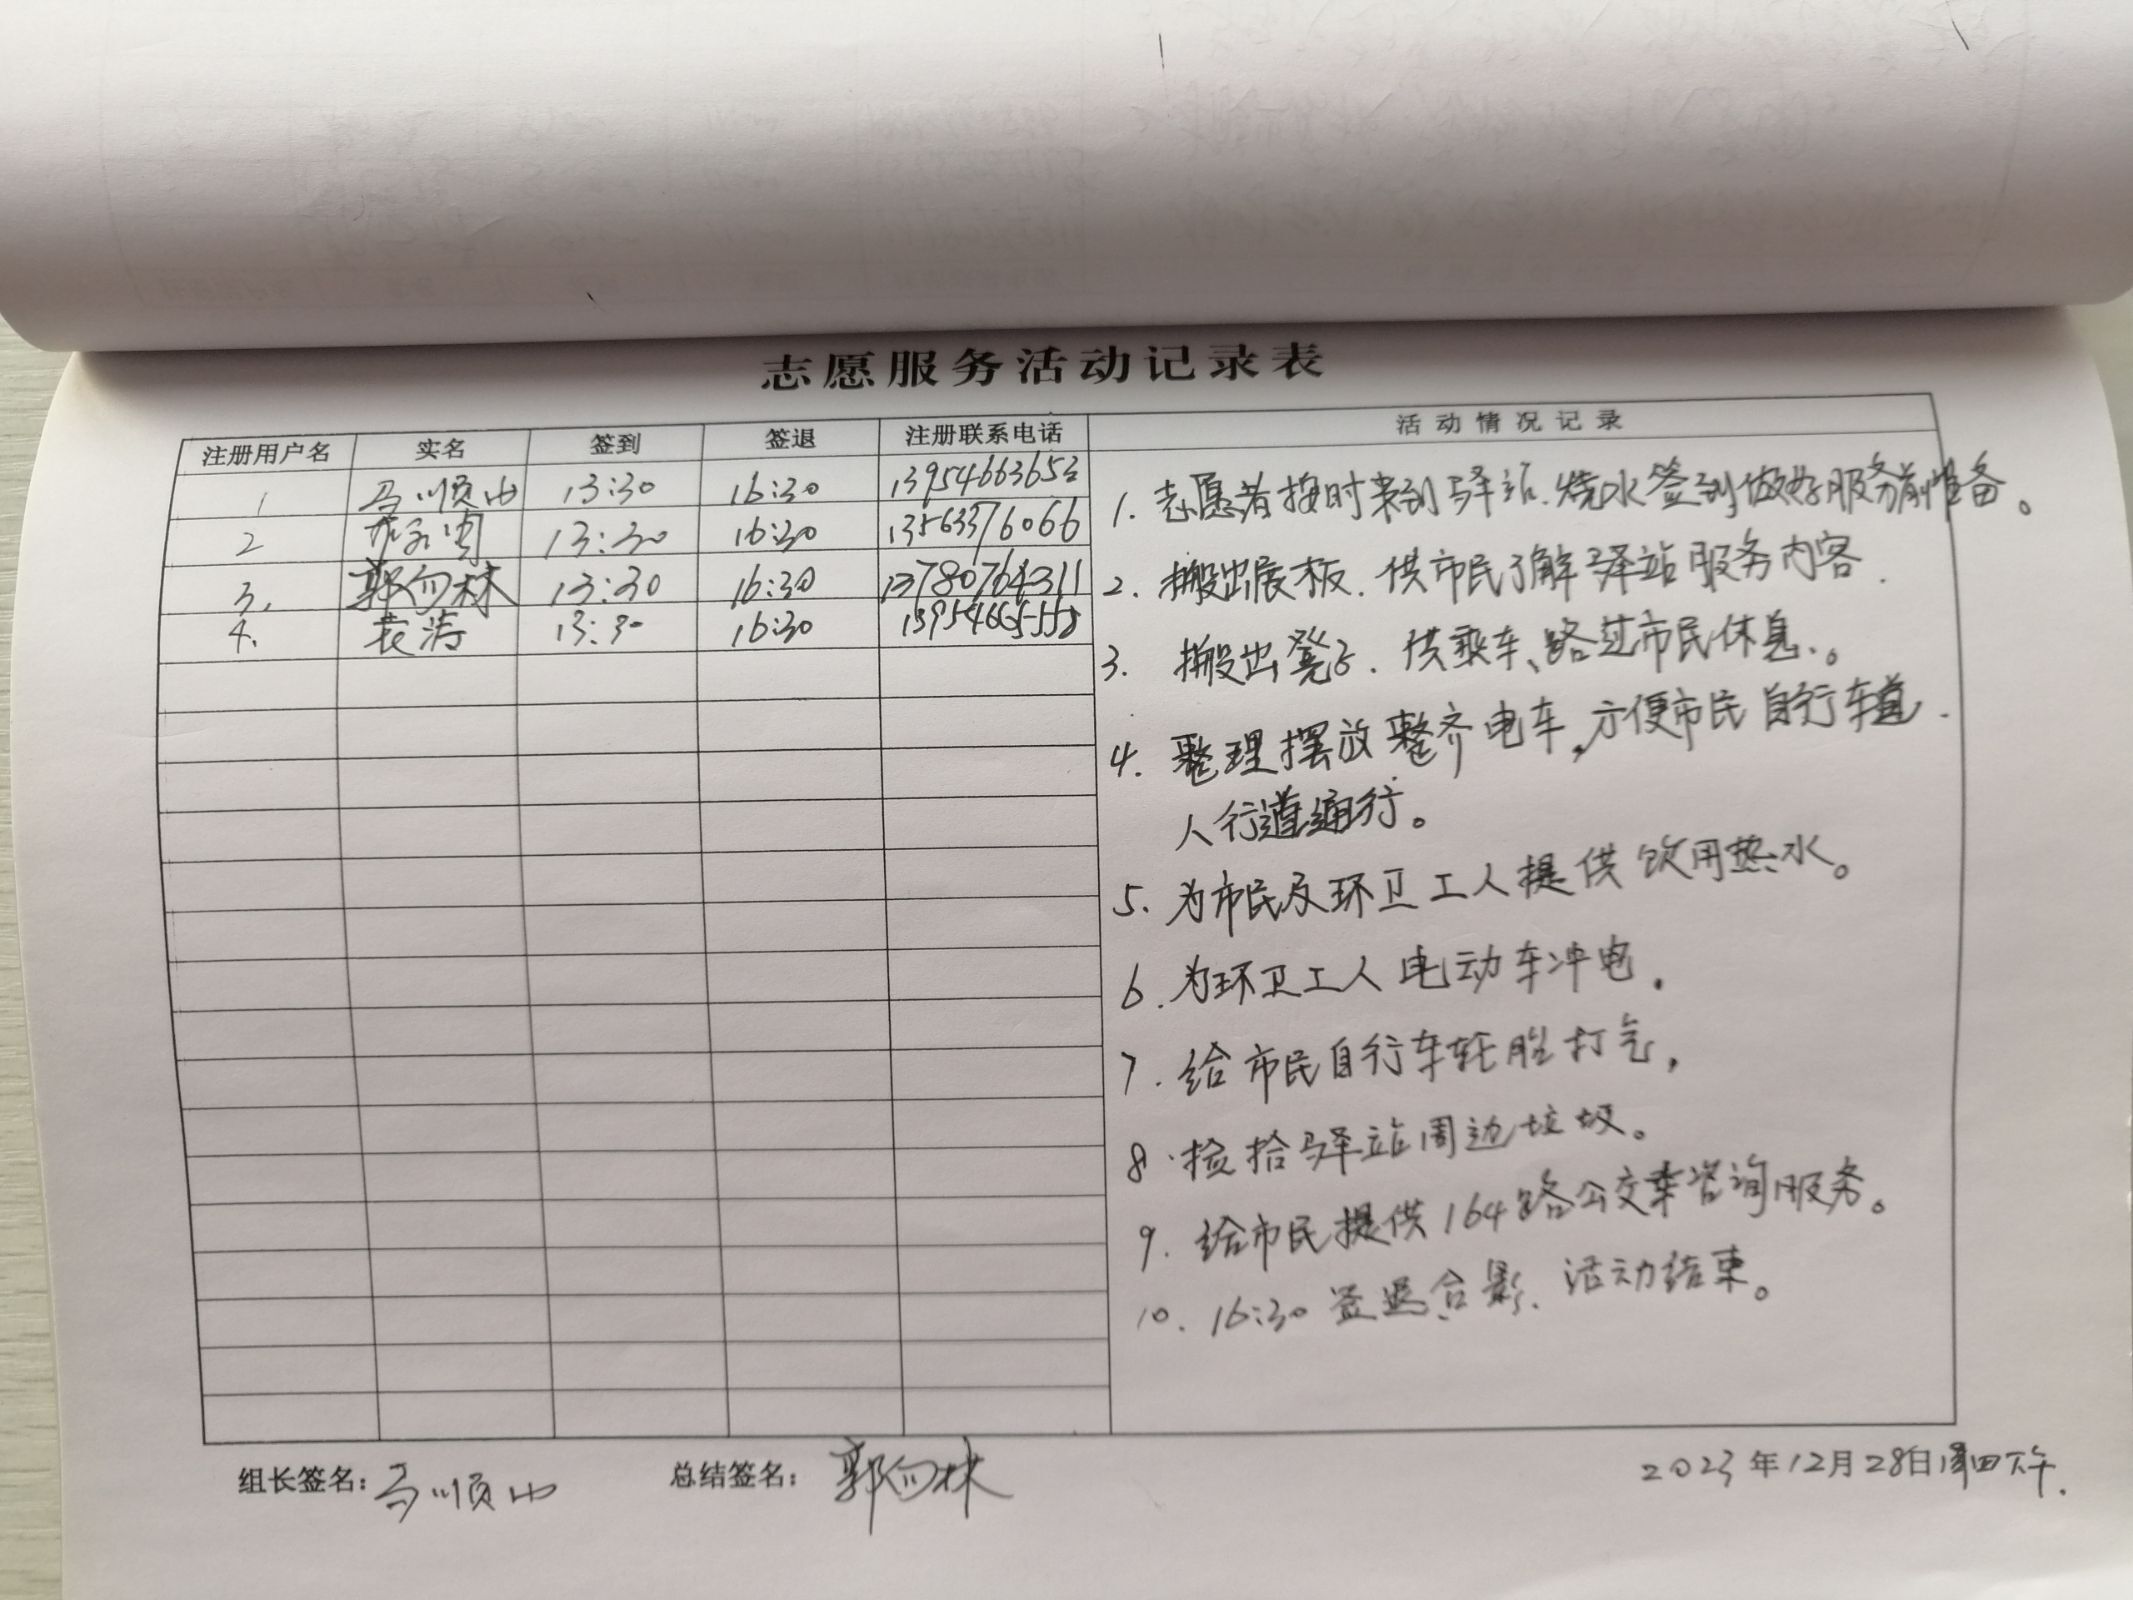 志愿服务活动记录表
注册用户名 实名 签到 签退 注册联系电话 活动情况记录
1 马顺山 13:30 16:30 13954663653
2 13:30 16:30 13563376066
3. 郭向林 13:30 16:30 13780764311
4. 袁涛 13:30 16:30
1. 志愿者按时来到驿站.烧水签到做好服务前准备。
2. 搬出展板.供市民了解驿站服务内容.
3. 搬出凳子.供乘车、路过市民休息.。
4. 整理摆放整齐电车,方便市民自行车道.
人行道通行。
5. 为市民及环卫工人提供饮用热水。
6. 为环卫工人电动车冲电.
7. 给市民自行车轮胎打气.
8. 捡拾驿站周边垃圾。
9. 给市民提供164路公交乘咨询服务。
10. 16:30签退合影、活动结束。
组长签名: 马顺山 总结签名: 郭向林 2023年12月28日周四下午.